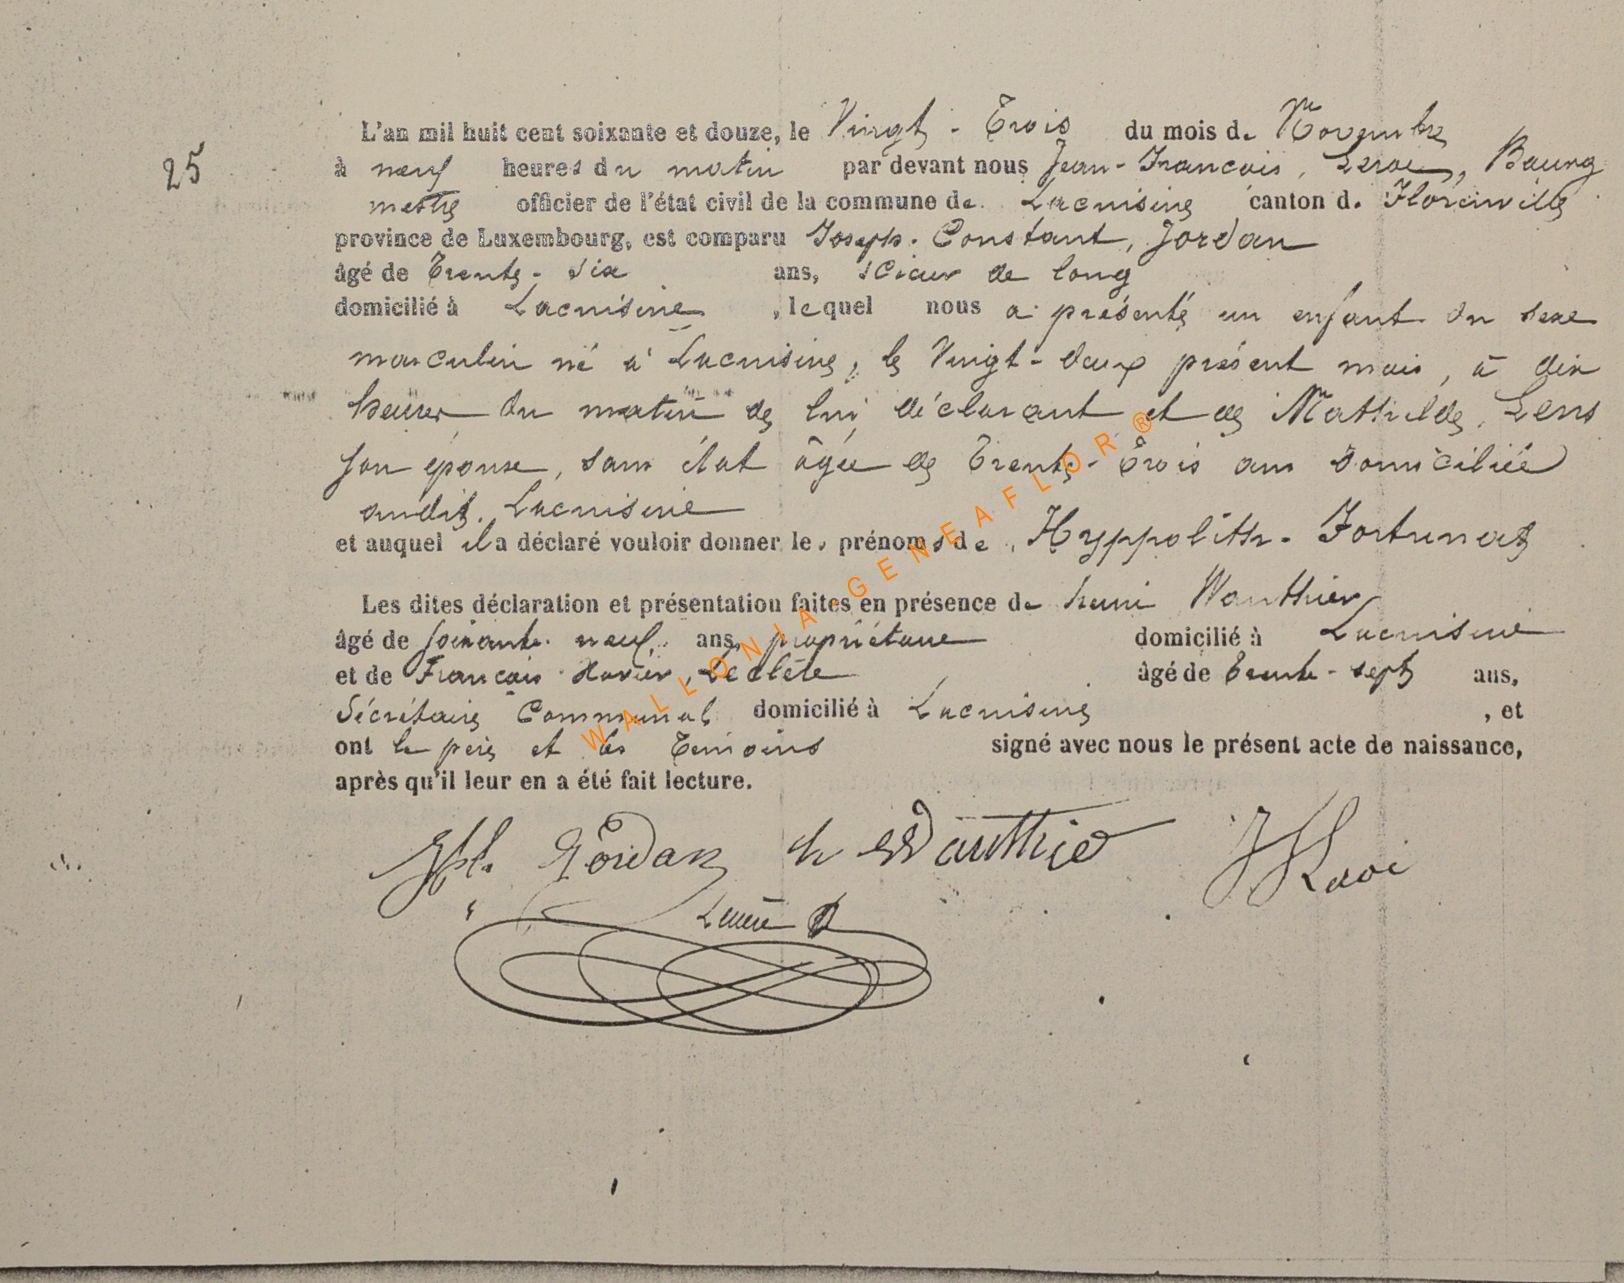 25
L'an mil huit cent soixante et douze, le Vingt-Trois du mois de Novembre
à neuf heures du matin par devant nous Jean-Francois, Bourg
mestre officier de l'état civil de la commune de Lacuisine canton de Florenville
province de Luxembourg, est comparu Joseph-Constant, Jordan
âgé de Trente-Six ans, scieur de long
domicilié à Lacuisine, lequel nous a présenté un enfant du sexe
masculin né à Lacuisine, le Vingt-deux présent mois, à dix
heures du matin de lui déclarant et de Mathilde, Lens
son épouse, sans état âgée de Trente-Trois ans domiciliée
audit Lacuisine
et auquel il a déclaré vouloir donner les prénoms de Hyppolithe-Fortunat
Les dites déclaration et présentation faites en présence de henri Wauthier
âgé de soixante-neuf ans, propriétaire domicilié à Lacuisine
et de Francois Xavier, âgé de trente-sept ans,
Sécrétaire Communal domicilié à Lacuisine, et
ont le père et les Temoins signé avec nous le présent acte de naissance,
après qu'il leur en a été fait lecture.
Jph. Jordan h Wauthier
WALLONIA-GENEAFLOR®